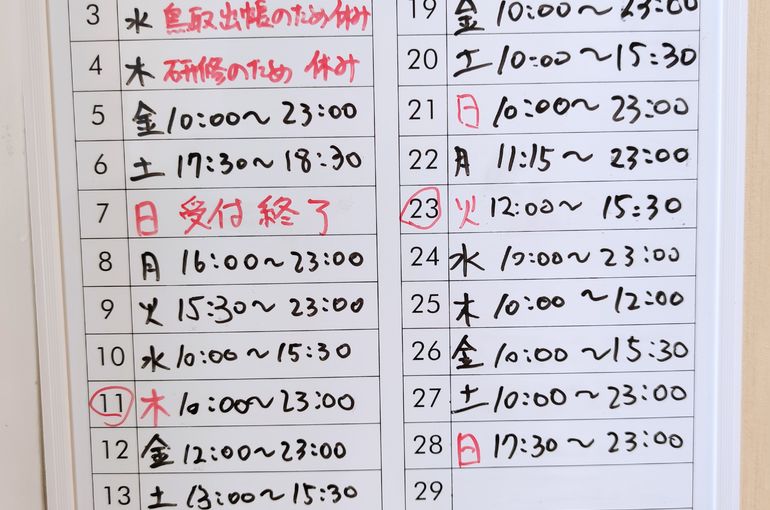 3 水 鳥取出帳のため休み
4 木 研修のため 休み
5 金 10:00〜 23:00
6 土 17:30〜 18:30
7 日 受付 終了
8 月 16:00〜23:00
9 火 15:30〜 23:00
10 水 10:00〜15:30
11 木 10:00〜23:00
12 金 12:00〜23:00
13 土 13:00〜15:30
19 金 10:00〜23:00
20 土 10:00〜15:30
21 日 10:00〜 23:00
22 月 11:15〜 23:00
23 火 12:00〜 15:30
24 水 10:00〜23:00
25 木 10:00 〜12:00
26 金 10:00〜15:30
27 土 10:00〜23:00
28 日 17:30〜23:00
29